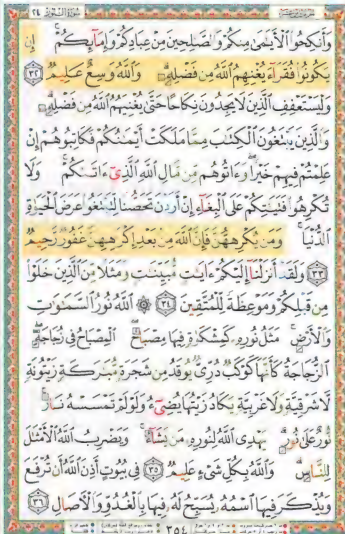 سورة النور ٢٤
وَأَنكِحُوا الْأَيَامَىٰ مِنكُمْ وَالصَّالِحِينَ مِنْ عِبَادِكُمْ وَإِمَائِكُمْ ۚ إِن
يَكُونُوا فُقَرَاءَ يُغْنِهِمُ اللَّهُ مِن فَضْلِهِ ۗ وَاللَّهُ وَاسِعٌ عَلِيمٌ ٣٢
وَلْيَسْتَعْفِفِ الَّذِينَ لَا يَجِدُونَ نِكَاحًا حَتَّىٰ يُغْنِيَهُمُ اللَّهُ مِن فَضْلِهِ ۗ
وَالَّذِينَ يَبْتَغُونَ الْكِتَابَ مِمَّا مَلَكَتْ أَيْمَانُكُمْ فَكَاتِبُوهُمْ إِنْ
عَلِمْتُمْ فِيهِمْ خَيْرًا ۖ وَآتُوهُم مِّن مَّالِ اللَّهِ الَّذِي آتَاكُمْ ۚ وَلَا
تُكْرِهُوا فَتَيَاتِكُمْ عَلَى الْبِغَاءِ إِنْ أَرَدْنَ تَحَصُّنًا لِّتَبْتَغُوا عَرَضَ الْحَيَاةِ
الدُّنْيَا ۚ وَمَن يُكْرِههُّنَّ فَإِنَّ اللَّهَ مِن بَعْدِ إِكْرَاهِهِنَّ غَفُورٌ رَّحِيمٌ
٣٣ وَلَقَدْ أَنزَلْنَا إِلَيْكُمْ آيَاتٍ مُّبَيِّنَاتٍ وَمَثَلًا مِّنَ الَّذِينَ خَلَوْا
مِن قَبْلِكُمْ وَمَوْعِظَةً لِّلْمُتَّقِينَ ٣٤ ۞ اللَّهُ نُورُ السَّمَاوَاتِ
وَالْأَرْضِ ۚ مَثَلُ نُورِهِ كَمِشْكَاةٍ فِيهَا مِصْبَاحٌ ۖ الْمِصْبَاحُ فِي زُجَاجَةٍ ۖ
الزُّجَاجَةُ كَأَنَّهَا كَوْكَبٌ دُرِّيٌّ يُوقَدُ مِن شَجَرَةٍ مُّبَارَكَةٍ زَيْتُونَةٍ
لَّا شَرْقِيَّةٍ وَلَا غَرْبِيَّةٍ يَكَادُ زَيْتُهَا يُضِيءُ وَلَوْ لَمْ تَمْسَسْهُ نَارٌ ۚ
نُّورٌ عَلَىٰ نُورٍ ۗ يَهْدِي اللَّهُ لِنُورِهِ مَن يَشَاءُ ۚ وَيَضْرِبُ اللَّهُ الْأَمْثَالَ
لِلنَّاسِ ۗ وَاللَّهُ بِكُلِّ شَيْءٍ عَلِيمٌ ٣٥ فِي بُيُوتٍ أَذِنَ اللَّهُ أَن تُرْفَعَ
وَيُذْكَرَ فِيهَا اسْمُهُ يُسَبِّحُ لَهُ فِيهَا بِالْغُدُوِّ وَالْآصَالِ ٣٦
٣٥٤